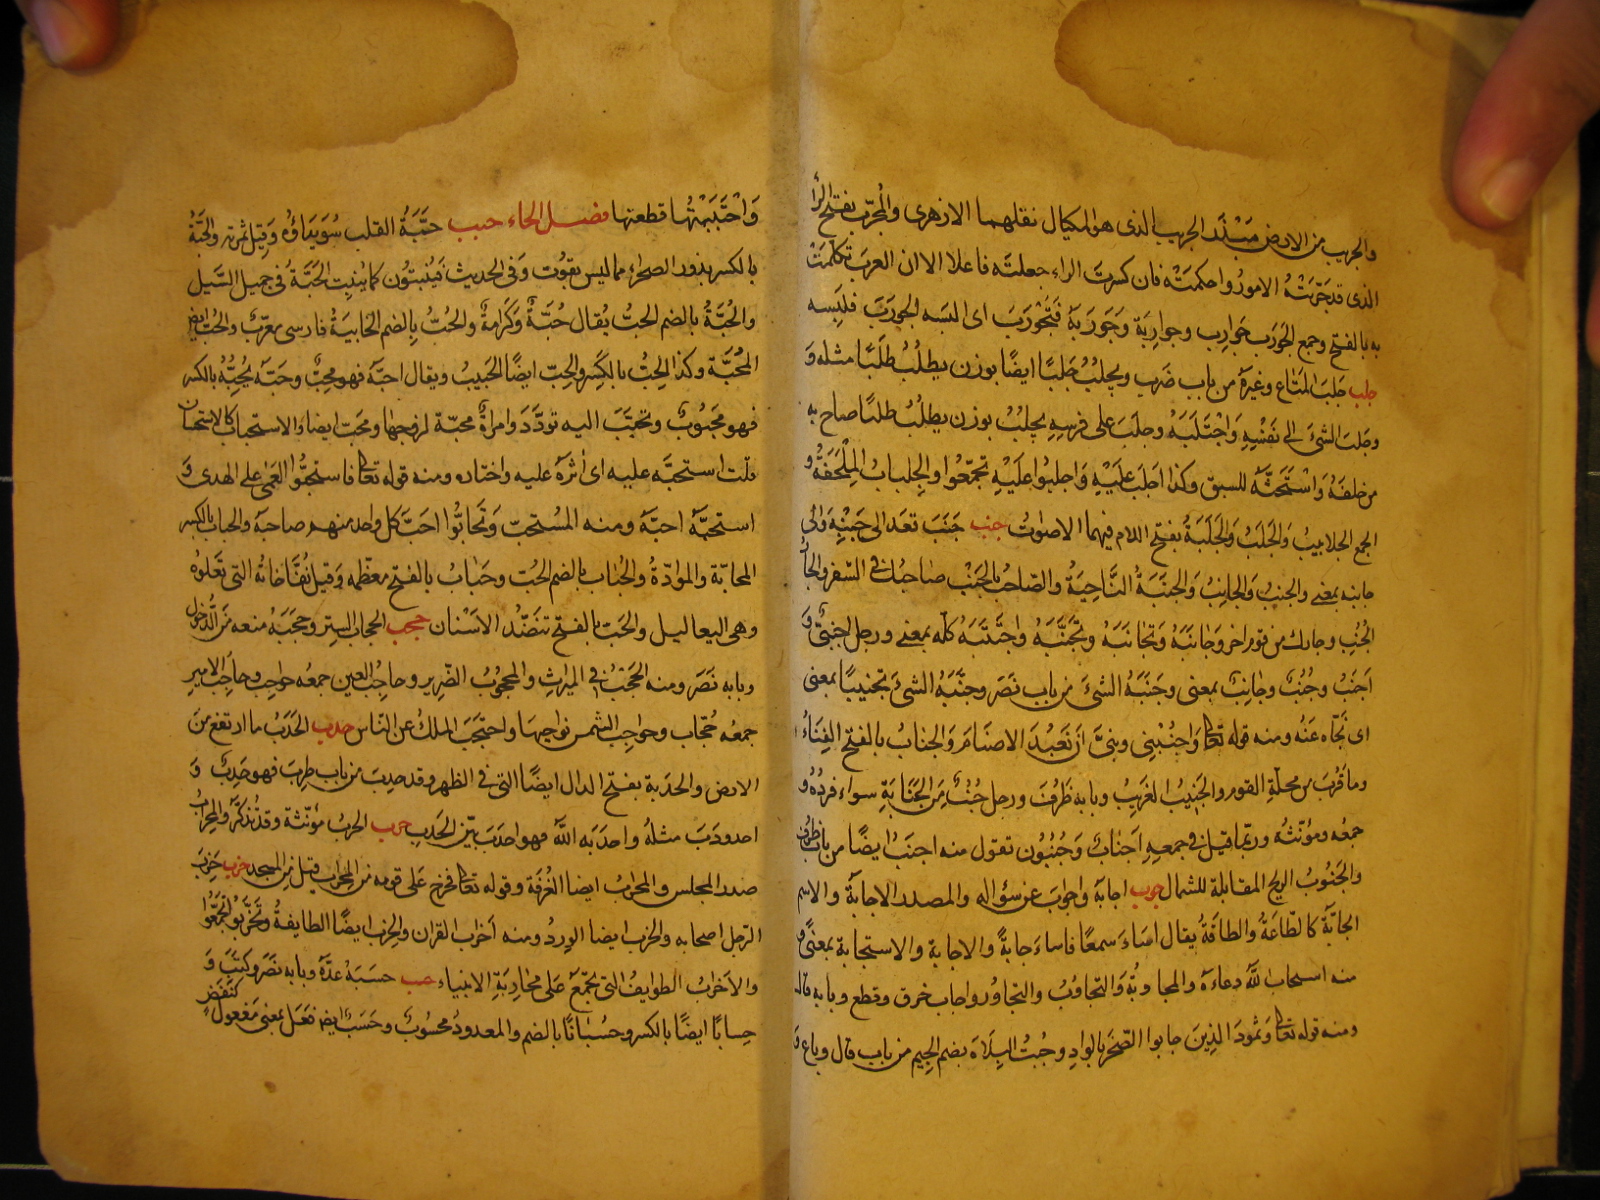 والجريب من الارض مَبْذَر الجريب الذى هو المكيال نقلهما الازهرى والمُجرّب بفتح الرا
الذى قد جَرّبَتْهُ الامورُ واحكمَتْه فان كسرتَ الراء جعلته فاعلا الا ان العربَ تكلّمتْ
به بالفتح وجمع الجَورَب جَوارِب وجوارِبَة وَجَورَبَهُ فَتَجَوْرَبَ اى البسَه الجَورَبَ فلبِسه
جلب جَلبَ المَتَاع وغيرَهُ من باب ضَرَب ويجلُبُ جَلَبًا ايضًا بوزن يطلُبُ طلَبًا مثله وَ
وجَلبَ الشئَ الى نَفسِهِ وَاجْتَلَبَهُ وجلَبَ على فرسِهِ يجلُبُ بوزن يطلُبُ طلبًا صاح به
من خلفه وَاسْتَحَثَّهُ للسبق وكذا اجلَبَ عَلَيْهِ وَاجلبُوا عَلَيْهِ تجمّعُوا والجِلبابُ المِلْحَفَةُ و
الجمع الجلابيبُ وَالجَلَبُ وَالجَلَبَةُ بفتح اللام فيهما الاصوات جنب جَنَبَ قعد الى جَنْبِهِ وَالى
جانبه بمعنى والجنبُ وَالجانِبُ وَالجَنَبَةُ النَّاحِيَةُ والصّاحبُ بالجَنْبِ صاحبُك فى السّفر والجارُ
الجُنُب وجارك من قوم اخر وَجَانَبَهُ وَتجانَبَهُ وتَجَنَّبَهُ وَاجْتَنَبَهُ كلّه بمعنى ورجل اجنبىّ وَ
اَجنَبُ وجُنُبٌ وجانِبٌ بمعنى وجَنَبَهُ الشئَ من باب نَصَر وجنَّبَهُ الشئَ تجنيبًا بمعنى
اى نَجّاه عَنْهُ ومنه قوله تعالى وَاجْنُبْنِى وبنىَّ اَنْ نَعْبُدَ الاصْنَامَ وَالجَنابُ بالفتح الفِنَاءُ
وما قَرُبَ من محلّةِ القوم والجَنِيبُ الغرِيبُ وبابه ظَرُفَ ورجل جُنُبٌ مِنَ الجَنَابَةِ سواء فردُهُ و
جمعُه ومؤنّثُهُ وربّما قيل فى جمعِهِ اَجنابٌ وَجُنُبُون تقول منه اجنَبَ ايضًا من باب ظَرُفَ
والجَنُوبُ الريح المقابلة للشمال جوب اجابَه واجابَ عن سؤاله والمصدر الاجابَةُ والاسم
الجابَةُ كالطّاعَةُ والطاقَةُ يقال اسَاءَ سمعًا فاساءَ جابةً والاجابة والاستجابة بمعنًى و
منه استجاب اللهُ دعاءَهُ والمجاوبَةُ وَالتجاوُب والتحاوُر وجاب خرق وقطع وبابه قال
ومنه قوله تعالى وَثمودَ الذِينَ جابوا الصّخرَ بالوادِ وجُبتُ البِلادَ بضم الجيم من باب قال وباع وَ
وَاجْتَبْتُها قطعتها فصل الحاء حبب حَبَّةُ القلب سُوَيداؤُه وَقيل ثمرته والحِبّةُ
بالكسر بذور الصحراء مما ليس بقوت وَفى الحديث فيَنبتُون كما يَنبُت الحَبّةُ فى حَمِيل السَّيل
والحُبَّةُ بالضم الحبُّ يُقال حُبَّةٌ وَكَرَامةٌ والحُبُّ بالضم الخابيَةُ فارسى معرّبٌ والحُبّ ايضا
المُحبّة وكذا الحِبُّ بالكَسِر والحِبّ ايضًا الحَبيبُ ويقال احبَّهُ فهو مُحِبٌّ وحَبّه يَحِبُّهُ بالكسر
فهو مَحبُوبٌ وتحبّبَ اليه تودَّدَ وامراةٌ محبّة لزوجها ومحبّ ايضا والاستحباب كالاستحسان
قلت استحبَّه عليه اى اٰثَرَهُ عليه واختاره ومنه قوله تعالى فاستَحبُّوا العَمَى على الهدى وَ
استحبَّهُ احبَّهُ ومنه المُستحبّ وَتحابُّوا احَبّ كل واحد منهم صاحبَهُ والحِباب بالكسر
المحابّة والموادّةُ والحُبَاب بالضم الحُبّ وحَبابُ بالفتح معظمه وَقيل نُفّاخاتُهُ التى تعلوهُ
وهى اليعاليل والحَبَبُ بالفتح تنضّد الاَسْنان حجب الحِجابُ السِتر وحَجَبَهُ منعه من الدُّخول
وبابه نَصَر ومنه الحَجْبُ فى الميرٰاثِ والمحجُوبُ الضّرير وحاجِبُ العين جمعُه حواجِب وحاجِبُ الامير
جمعُه حُجّاب وحواجِبُ الشمس نواحيهَا واحتجَبَ الملكُ عن النّاس حدب الحَدَبُ ما ارتفع من
الارض والحدَبة بفتح الدال ايضًا التى فى الظهر وقد حدِبَ من باب طرِبَ فهو حَدِبٌ وَ
احدودَبَ مثلهُ واحدَبَه اللهُ فهو احدَبُ بيّن الحَدبِ حرب الحَربُ مؤنّثة وقد تُذكّر والمِحرابُ
صَدر المجلس والمحراب ايضا الغُرْفَة وقوله تعالى فخرج عَلى قومه من المحرابِ قيل من المسجد حزب حِزبُ
الرّجل اصحابه والحِزب ايضا الوِردُ ومنه اَحْزابُ القران والحِزب ايضًا الطايفةُ وتَحَزَّبُوا تجمّعُوا
والاَحزابُ الطوايفُ التى تجمّعَ عَلى محاربَةِ الانبياء حسب حسَبَهُ عدّهُ وبابه نَصَر وكَتَبَ وَ
حِسابًا ايضًا بالكسر وحُسْبانًا بالضم والمعدودُ محسُوبٌ وحَسَبٌ ايضا فعَل بمعنى مَفعُول كنَفَضٍ